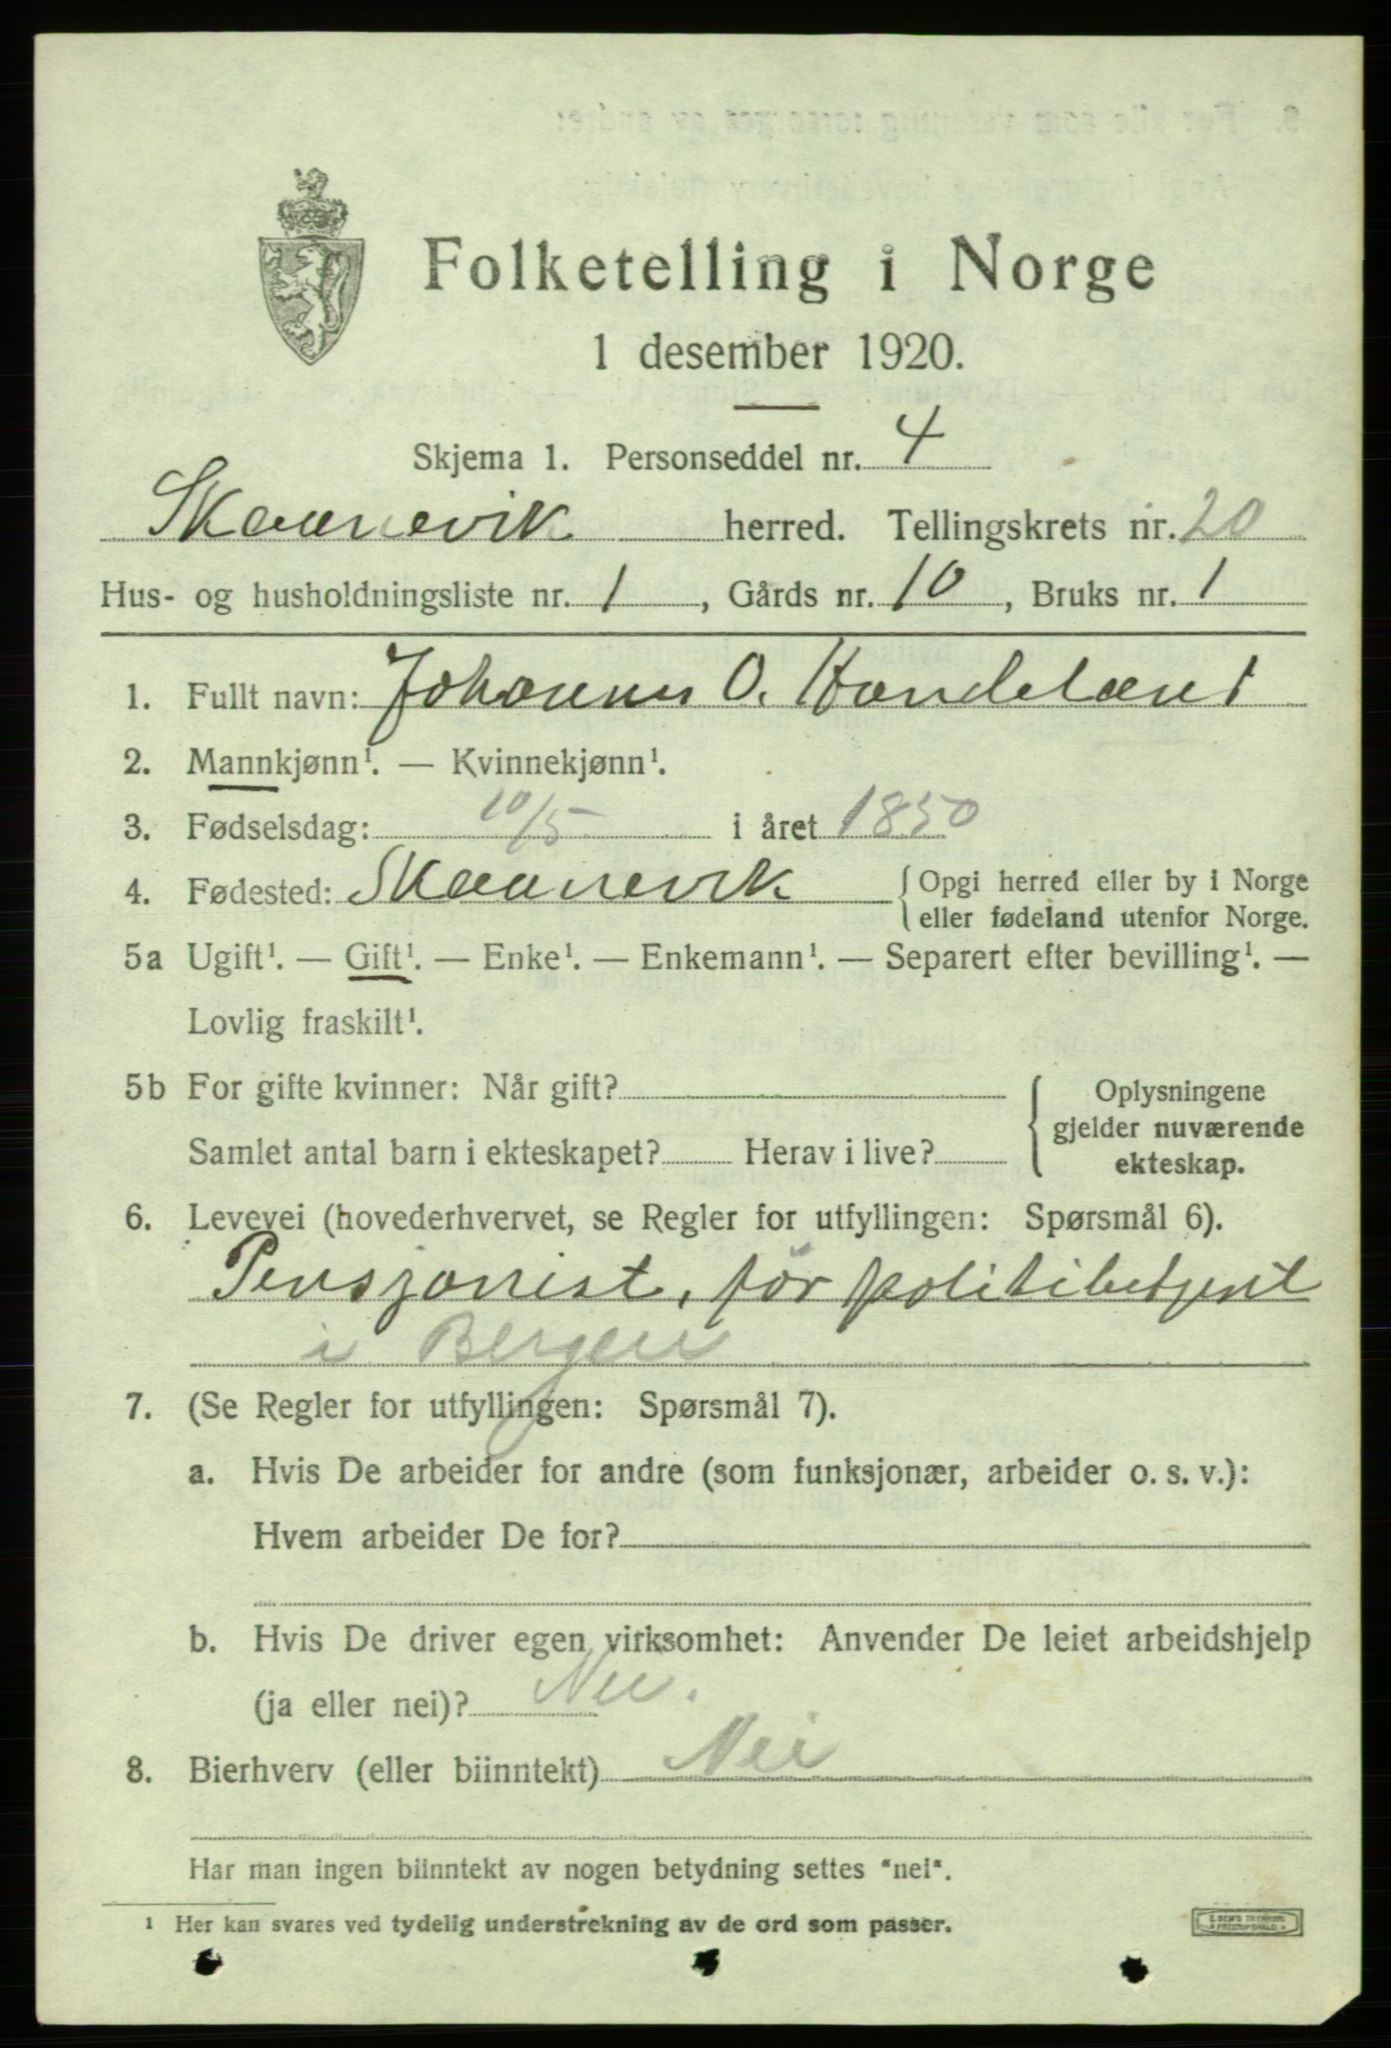 Folketelling i Norge
1 desember 1920.
Skjema 1. Personseddel nr. 4
Skaanevik herred. Tellingskrets nr. 20
Hus- og husholdningsliste nr. 1, Gårds nr. 10, Bruks nr. 1
1. Fullt navn: Johannes O. Handeland
2. Mannkjønn¹. — Kvinnekjønn¹.
3. Fødselsdag: 10/5 i året 1850
4. Fødested: Skaanevik {Opgi herred eller by i Norge
eller fødeland utenfor Norge.
5a Ugift¹. — Gift¹. — Enke¹. — Enkemann¹. — Separert efter bevilling¹. —
Lovlig fraskilt¹.
5b For gifte kvinner: Når gift?
Samlet antal barn i ekteskapet? Herav i live?
{Oplysningene
gjelder nuværende
ekteskap.
6. Levevei (hovederhvervet, se Regler for utfyllingen: Spørsmål 6).
Pensjonist, før politibetjent
i Bergen
7. (Se Regler for utfyllingen: Spørsmål 7).
a. Hvis De arbeider for andre (som funksjonær, arbeider o. s. v.):
Hvem arbeider De for?
b. Hvis De driver egen virksomhet: Anvender De leiet arbeidshjelp
(ja eller nei)? Nei.
8. Bierhverv (eller biinntekt) Nei
Har man ingen biinntekt av nogen betydning settes "nei".
1 Her kan svares ved tydelig understrekning av de ord som passer.